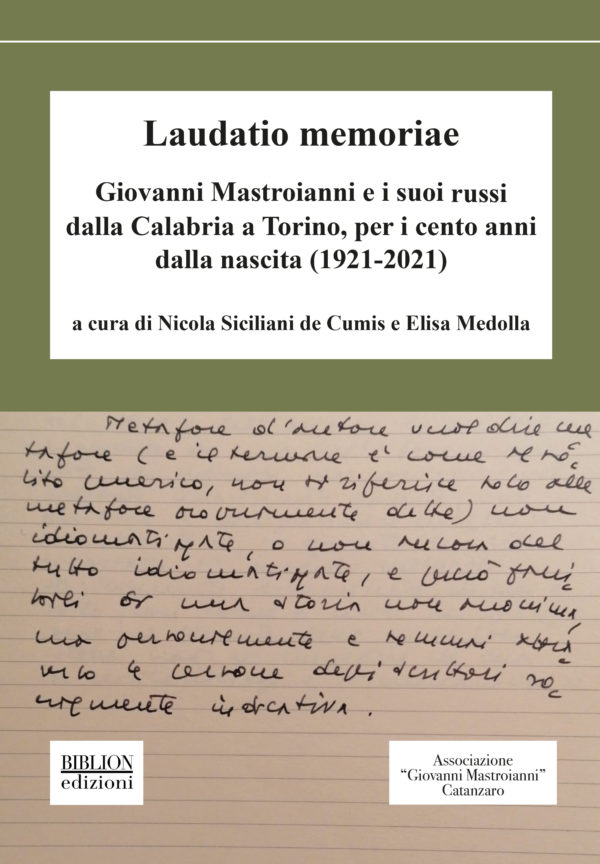 Laudatio memoriae
Giovanni Mastroianni e i suoi russi
dalla Calabria a Torino, per i cento anni
dalla nascita (1921-2021)
a cura di Nicola Siciliani de Cumis e Elisa Medolla
Metafore d'autore vuol dire me
tafore (e il termine è come al so
lito generico, non si riferisce solo alle
metafore propriamente dette) non
idiomatizzate, o non ancora del
tutto idiomatizzate, e perciò
di una storia non anonima,
ma personalmente e
degli scrittori so
indicativa.
BIBLION
edizioni
Associazione
“Giovanni Mastroianni”
Catanzaro